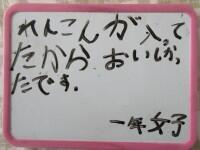 れんこんが入って
たから おいしかっ
たです。
一年 女子